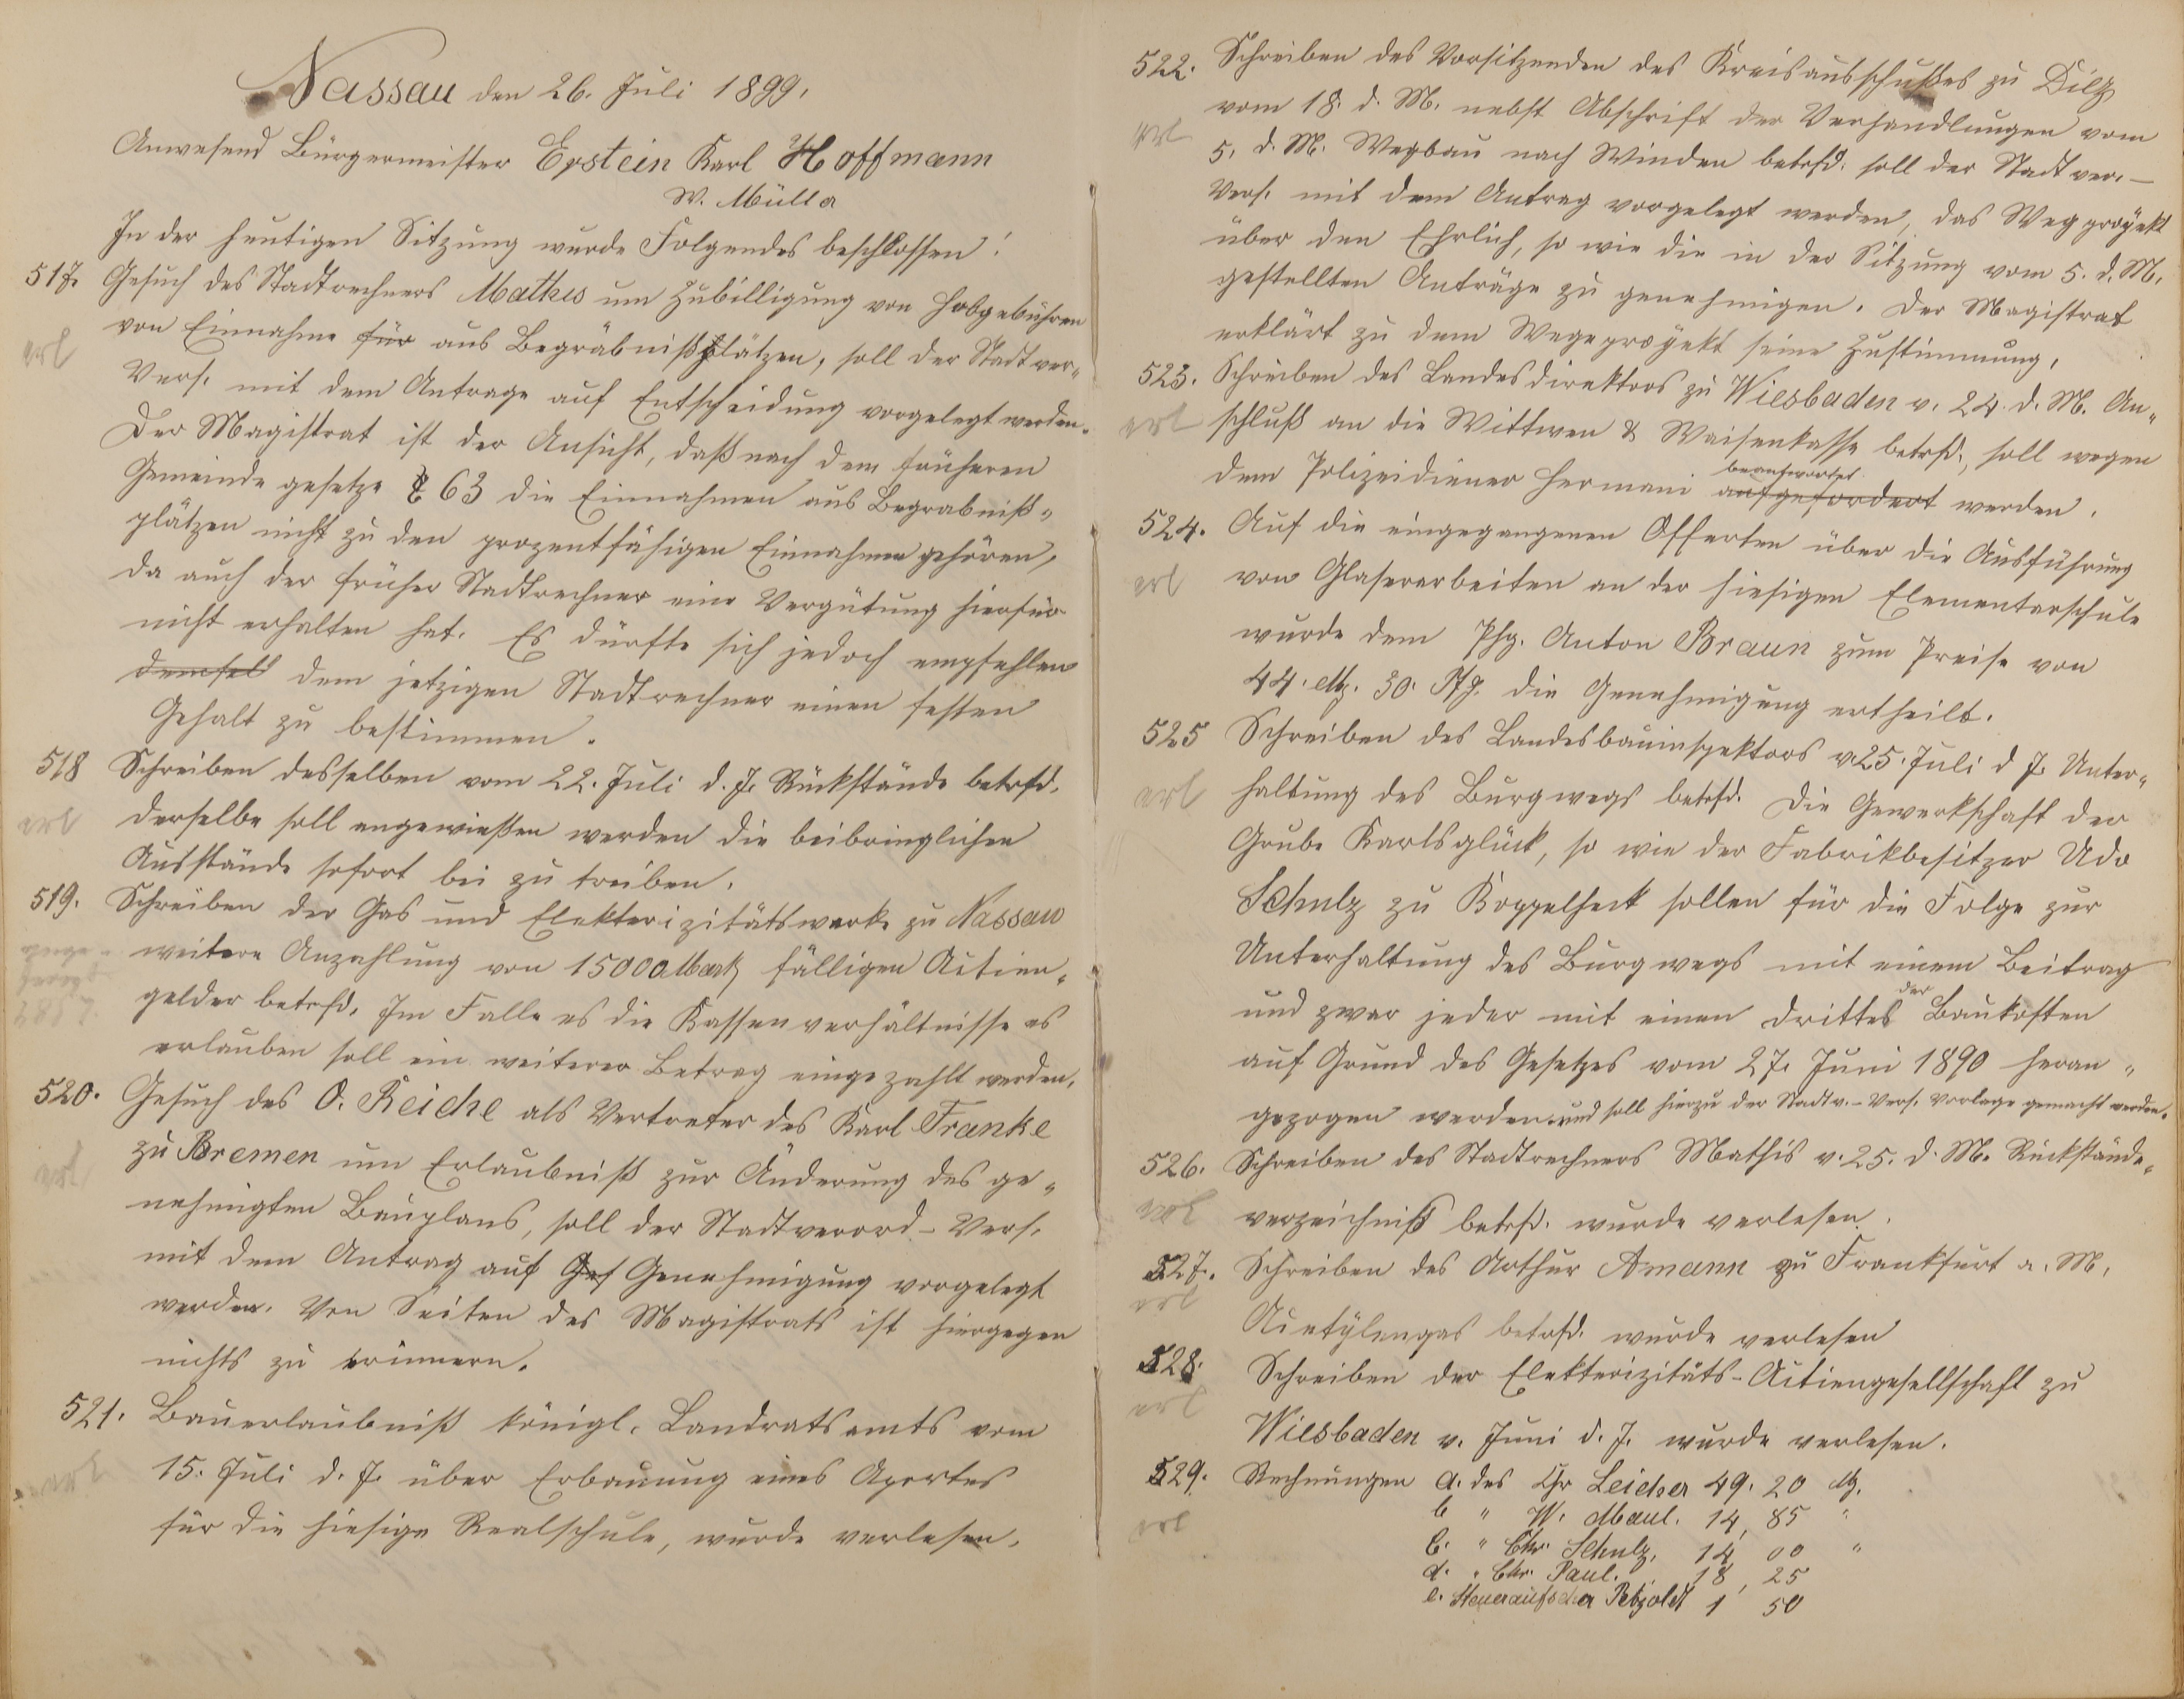 Nassau den 26. Juli 1899.
Anwesend Bürgermeister Epstein Karl Hoffmann
W. Müller
In der heutigen Sitzung wurde Folgendes beschlossen:
517. Gesuch des Stadtrechners Mathis um Zubilligung von Hebgebühren
erl
von Einnahme für aus Begräbnißplätzen, soll der Stadtver-
Vers. mit dem Antrage auf Entscheidung vorgelegt werden.
Der Magistrat ist der Ansicht, daß nach dem früheren
Gemeindegesetze § 63 die Einnahmen aus Begräbniß-
plätzen nicht zu den prozentfähigen Einnahmen gehören,
da auch der früher Stadtrechner eine Vergütung hierfür
nicht erhalten hat. Es dürfte sich jedoch empfehlen
demsel dem jetzigen Stadtrechner einen festen
Gehalt zu bestimmen.
518 Schreiben desselben vom 22. Juli d. J. Rückstände betrfd.
erl
derselbe soll angewießen werden die beibringlichen
Ausstände sofort bei zu treiben.
519. Schreiben der Gas und Elekterizitätswerke zu Nassau
weitere Anzahlung von 15000 Mark fälligen Actien-
gelder betrfd. Im Falle es die Kassenverhältnisse es
erlauben soll ein weiterer Betrag eingezahlt werden.
520. Gesuch des O. Reiche als Vertreter des Karl Franke
zu Bremen um Erlaubniß zur Änderung des ge-
erl
nehmigten Bauplans, soll der Stadtverord-Vers.
mit dem Antrag auf Ges Genehmigung vorgelegt
werden. Von Seiten des Magistrats ist hiergegen
nichts zu erinnern.
521. Bauerlaubniß königl. Landratsamts vom
erl
15. Juli d. J. über Erbauung eines Abortes
für die hiesige Realschule, wurde verlesen.
522. Schreiben des Vorsitzenden des Kreisausschußes zu Diez
vom 18. d. M. nebst Abschrift der Verhandlungen vom
erl
5. d. M. Wegbau nach Winden betrfd. soll der Stadtver.-
Vers. mit dem Antrag vorgelegt werden, das Wegprojekt
über den Ehrlich, so wie die in der Sitzung vom 5. d. M.
gestellten Anträge zu genehmigen. Der Magistrat
erklärt zu dem Wegeprojekt seine Zustimmung.
523. Schreiben des Landesdirektors zu Wiesbaden v. 24. d. M. An-
erl
schluß an die Wittwen & Waisenkasse betrfd., soll wegen
beantwortet
dem Polizeidiener Hermani aufgefordert werden.
524. Auf die eingegangenen Offerten über die Ausführung
erl
von Glaserarbeiten an der hiesigen Elementarschule
wurde dem Phg. Anton Braun zum Preise von
44. M. 30. Pfg. die Genehmigung ertheilt.
525 Schreiben des Landesbauinspektors v. 25. Juli d J. Unter-
erl
haltung des Burgwegs betrfd. Die Gewerkschaft der
Grube Karlsglück, so wie der Fabrikbesitzer Udo
Schulz zu Koppelheck sollen für die Folge zur
Unterhaltung des Burgwegs mit einem Beitrag
und zwar jeder mit einen drittel der Baukosten
auf Grund des Gesetzes vom 27. Juni 1890 heran-
gezogen werden. und soll hierzu der Stadtv.-Vers. Vorlage gemacht werden.
526. Schreiben des Stadtrechners Mathis v. 25. d. M. Rückstände-
erl
verzeichniß betrfd. wurde verlesen.
527. Schreiben des Arthur Amann zu Frankfurt a. M.
erl
Acetylengas betrfd. wurde verlesen
528. Schreiben der Elekterizitäts-Actiengesellschaft zu
erl
Wiesbaden v. Juni d. J. wurde verlesen.
529. Rechnungen a. des Chr Leicher 49. 20 M.
erl
b " W. Maul. 14, 85 "
c. " Chr. Schulz. 14 00 "
d. " Chr. Paul. 18, 25
e. Steueraufseher Petzoldt 1 50